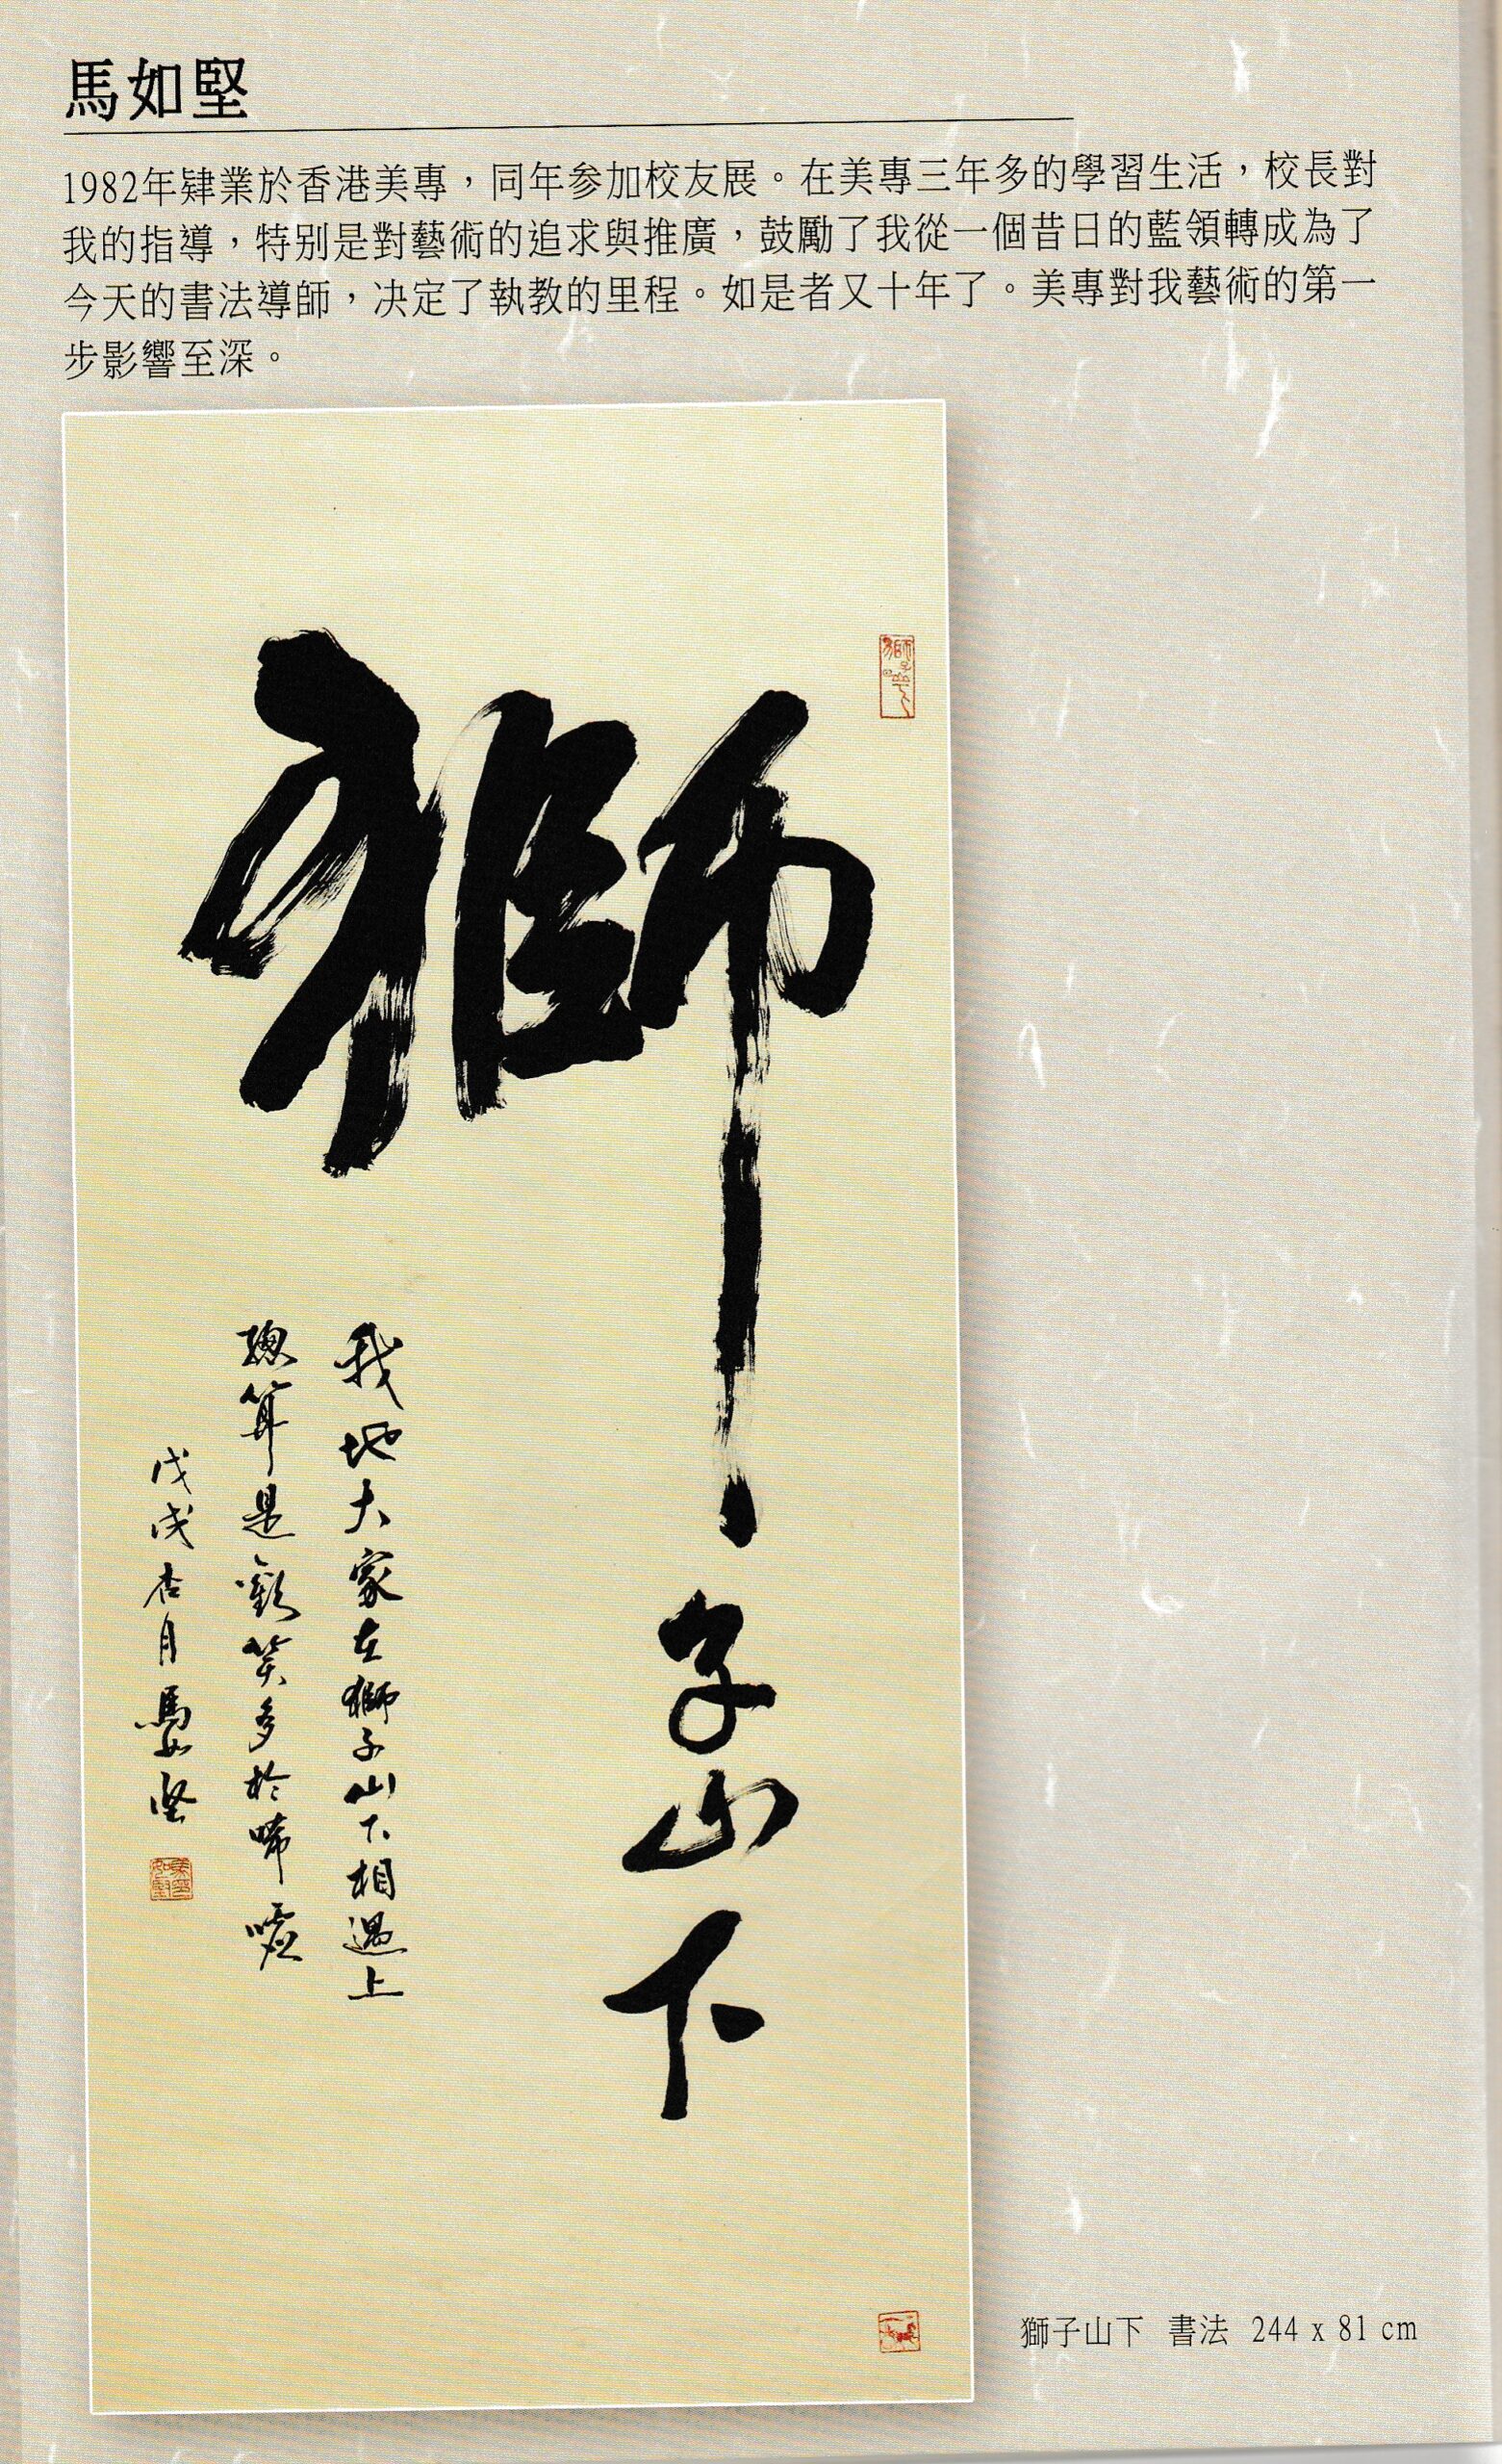 馬如堅
1982年肄業於香港美專，同年参加校友展。在美專三年多的學習生活，校長對
我的指導，特別是對藝術的追求與推廣，鼓勵了我從一個昔日的藍領轉成為了
今天的書法導師，决定了執教的里程。如是者又十年了。美專對我藝術的第一
步影響至深。
獅子山下
我地大家在獅子山下相遇上
總算是歡笑多於唏噓
戊戌杏月馬如堅
獅子山下 書法 244 x 81 cm